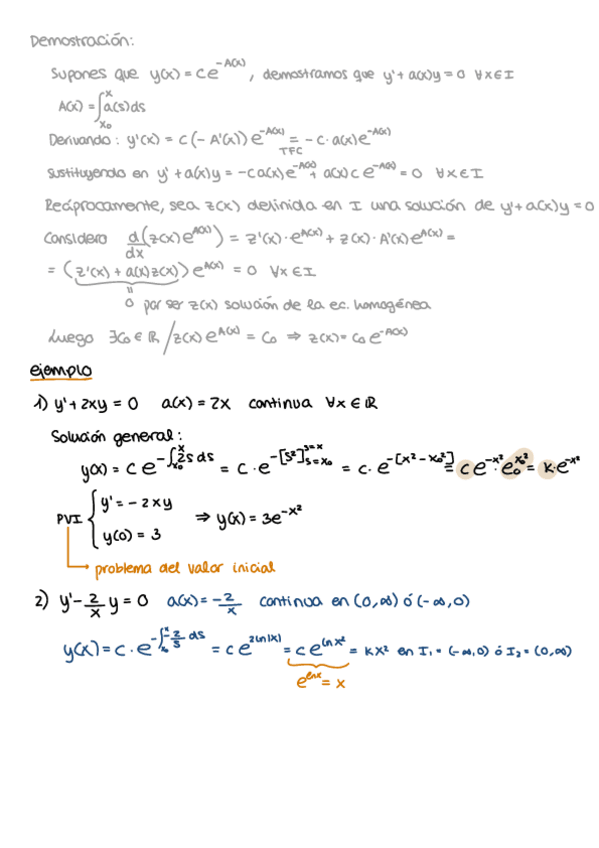 Demostración:
Supones que y(x) = c e^{-A(x)}, demostramos que y' + a(x)y = 0 ∀x∈I
A(x) = ∫_{x₀}^{x} a(s)ds
Derivando: y'(x) = c(-A'(x)) e^{-A(x)} = -c·a(x)e^{-A(x)}
TFC
sustituyendo en y' + a(x)y = -ca(x)e^{-A(x)} + a(x)c e^{-A(x)} = 0 ∀x∈I
Recíprocamente, sea z(x) definida en I una solución de y' + a(x)y = 0
Considero d/dx (z(x)e^{A(x)}) = z'(x)·e^{A(x)} + z(x)·A'(x)e^{A(x)} =
= (z'(x) + a(x)z(x)) e^{A(x)} = 0 ∀x∈I
"
0 por ser z(x) solución de la ec. homogénea
Luego ∃c₀∈ℝ / z(x)e^{A(x)} = c₀ ⇒ z(x) = c₀ e^{-A(x)}
ejemplo
1) y' + 2xy = 0 a(x) = 2x continua ∀x∈ℝ
Solución general:
y(x) = c e^{-∫_{x₀}^{x} 2s ds} = c·e^{-[s²]_{s=x₀}^{s=x}} = c·e^{-[x²-x₀²]} = c e^{-x²}·e^{x₀²} = k·e^{-x²}
PVI { y' = -2xy
y(0) = 3 ⇒ y(x) = 3e^{-x²}
problema del valor inicial
2) y' - 2/x y = 0 a(x) = -2/x continua en (0,∞) ó (-∞,0)
y(x) = c·e^{-∫_{x₀}^{x} -2/s ds} = c e^{2ln|x|} = c e^{ln x²} = kx² en I₁ = (-∞,0) ó I₂ = (0,∞)
e^{ln x} = x